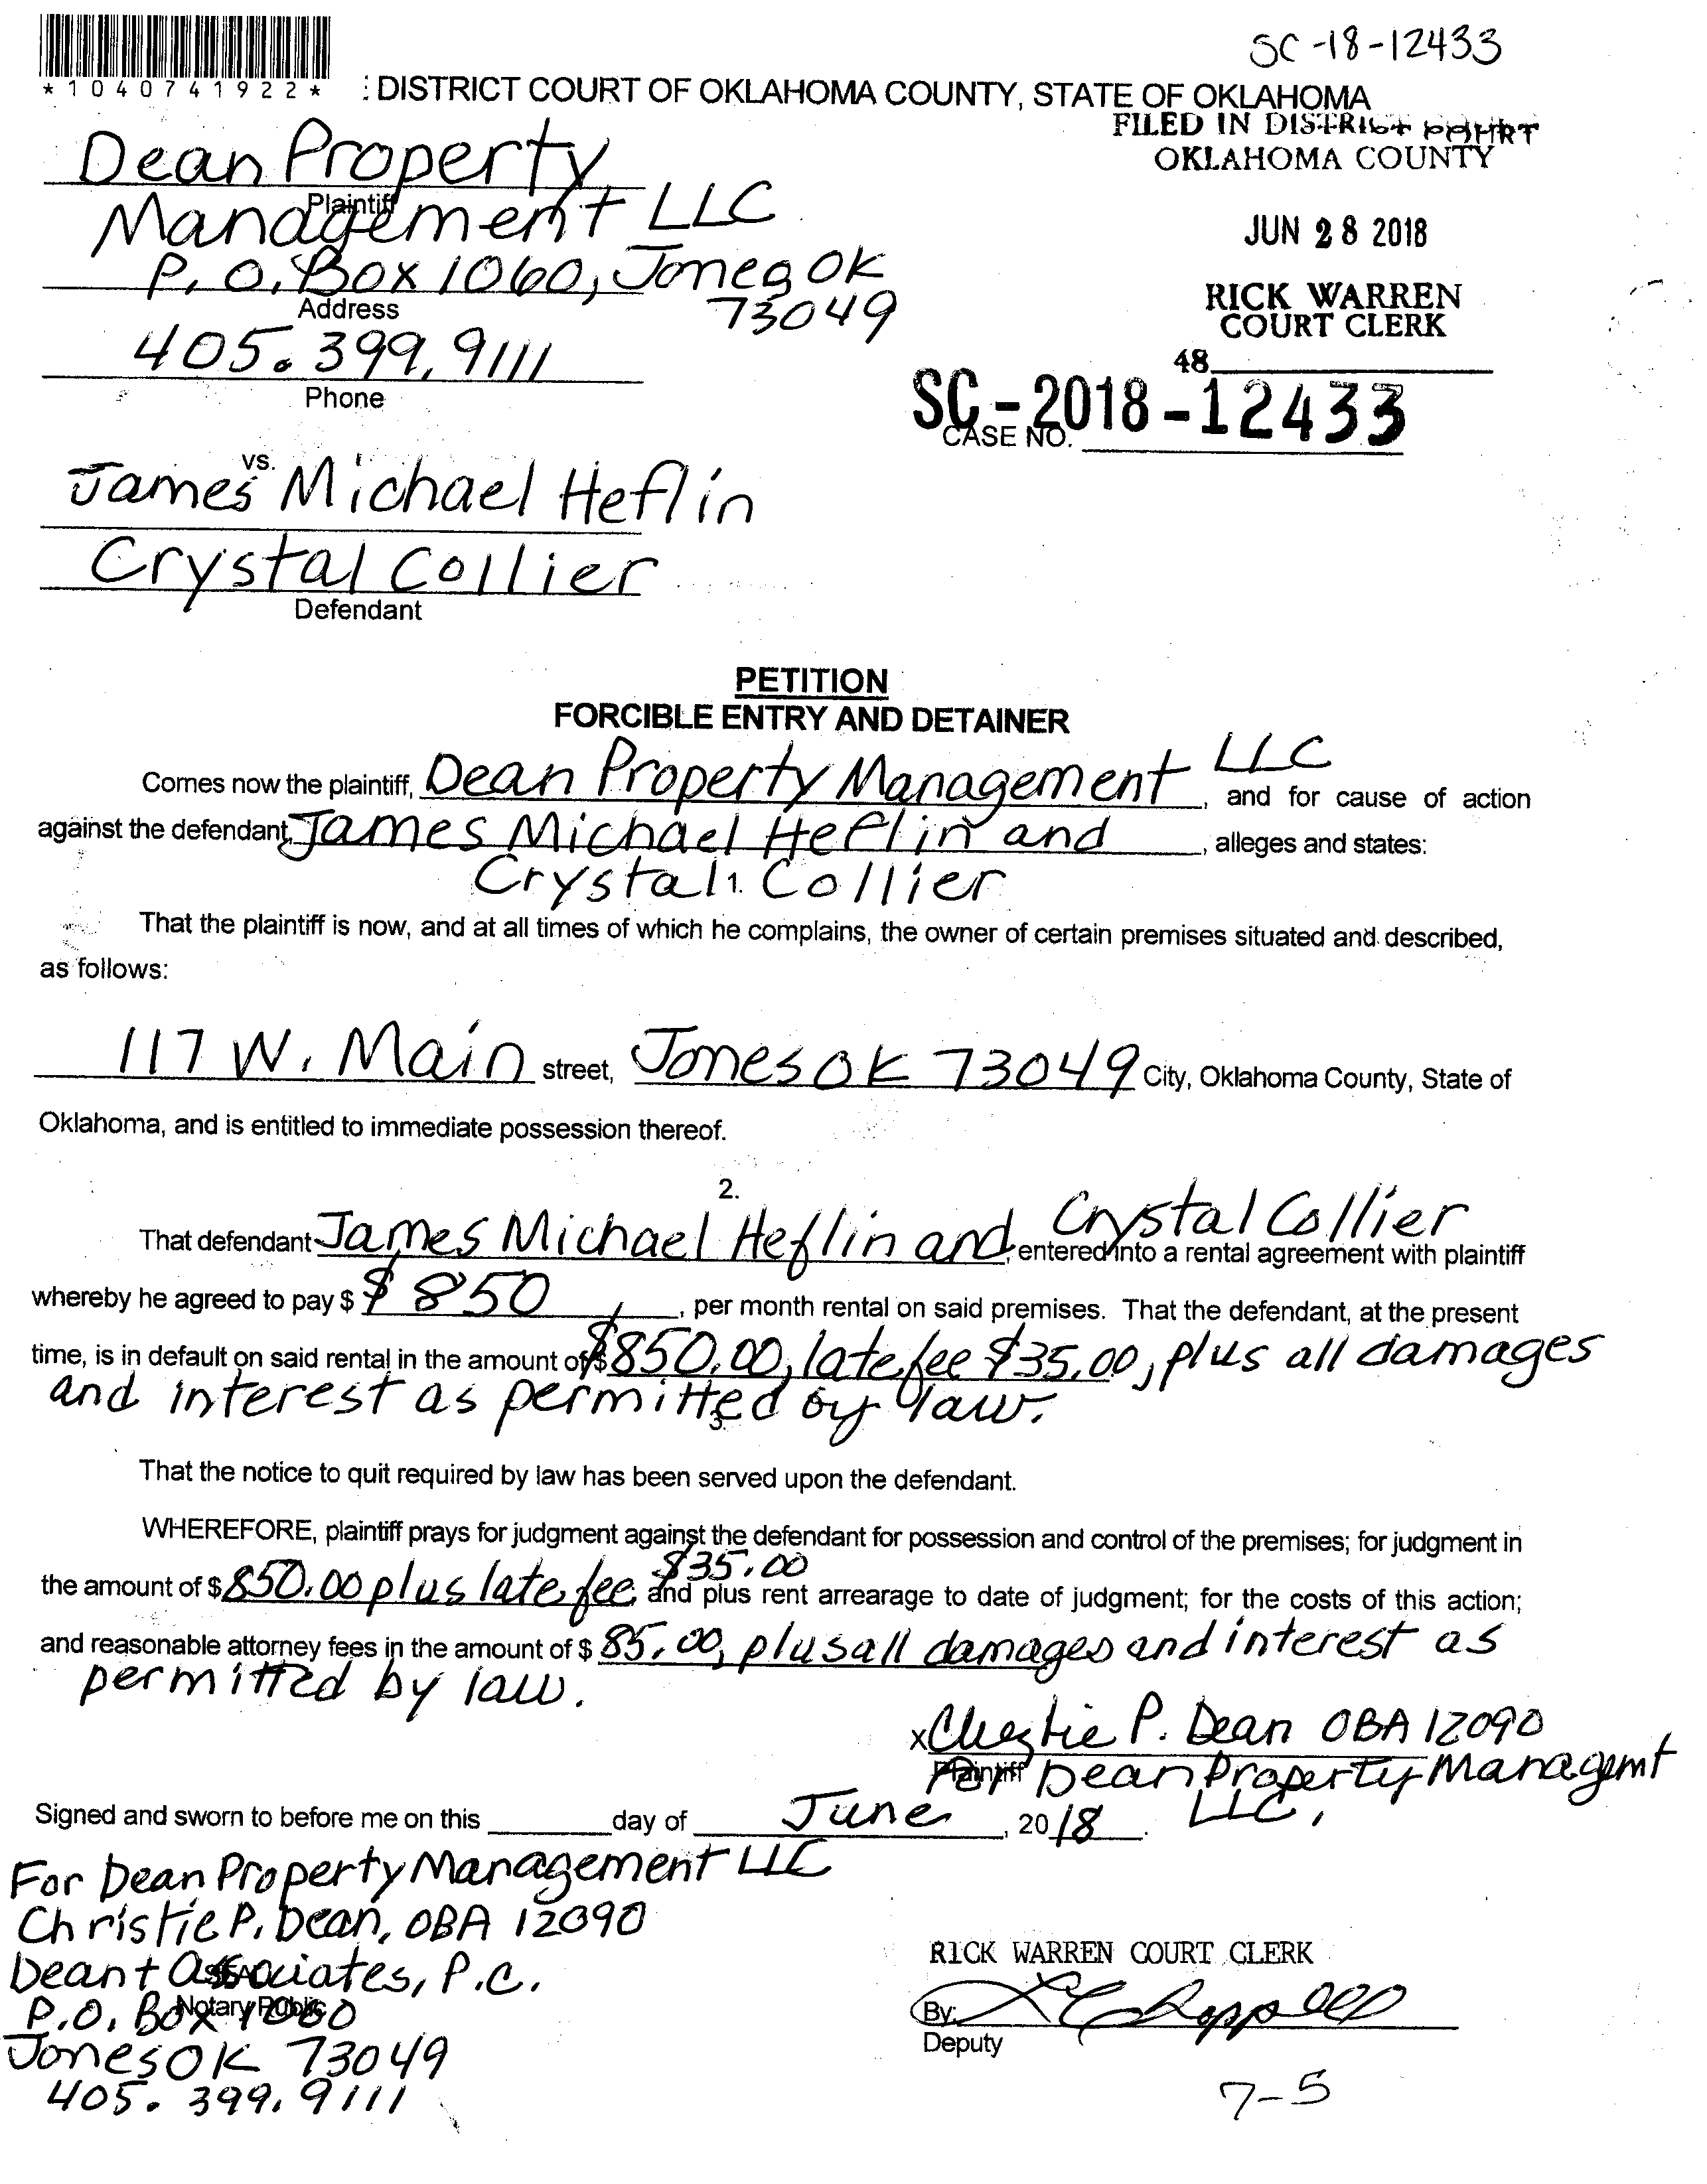 SC-18-12433
*1040741922*
: DISTRICT COURT OF OKLAHOMA COUNTY, STATE OF OKLAHOMA
FILED IN DISTRICT COURT
OKLAHOMA COUNTY
Dean Property
Plaintiff
Management LLC
JUN 28 2018
P.O. Box 1060, Jones OK
Address
73049
RICK WARREN
COURT CLERK
405.399.9111
Phone
48
SC-2018-12433
CASE NO.
vs.
James Michael Heflin
Crystal Collier
Defendant
PETITION
FORCIBLE ENTRY AND DETAINER
Comes now the plaintiff, Dean Property Management LLC, and for cause of action
against the defendant, James Michael Heflin and, alleges and states:
Crystal Collier
1.
That the plaintiff is now, and at all times of which he complains, the owner of certain premises situated and described,
as follows:
117 W. Main street, Jones OK 73049 City, Oklahoma County, State of
Oklahoma, and is entitled to immediate possession thereof.
2.
That defendant James Michael Heflin and Crystal Collier, entered into a rental agreement with plaintiff
whereby he agreed to pay $ $850, per month rental on said premises. That the defendant, at the present
time, is in default on said rental in the amount of $ $850.00, late fee $35.00, plus all damages
and interest as permitted by law.
3.
That the notice to quit required by law has been served upon the defendant.
WHEREFORE, plaintiff prays for judgment against the defendant for possession and control of the premises; for judgment in
the amount of $ 850.00 plus late fee $35.00, and plus rent arrearage to date of judgment; for the costs of this action;
and reasonable attorney fees in the amount of $ 85.00, plus all damages and interest as
permitted by law.
x Christie P. Dean OBA 12090
Plaintiff
For Dean Property Managemt
LLC.
Signed and sworn to before me on this ____ day of June, 2018.
For Dean Property Management LLC
Christie P. Dean, OBA 12090
Dean + Associates, P.C.
SEAL
P.O. Box 1060
Notary Public
Jones OK 73049
405.399.9111
RICK WARREN COURT CLERK
By:
Deputy
7-5